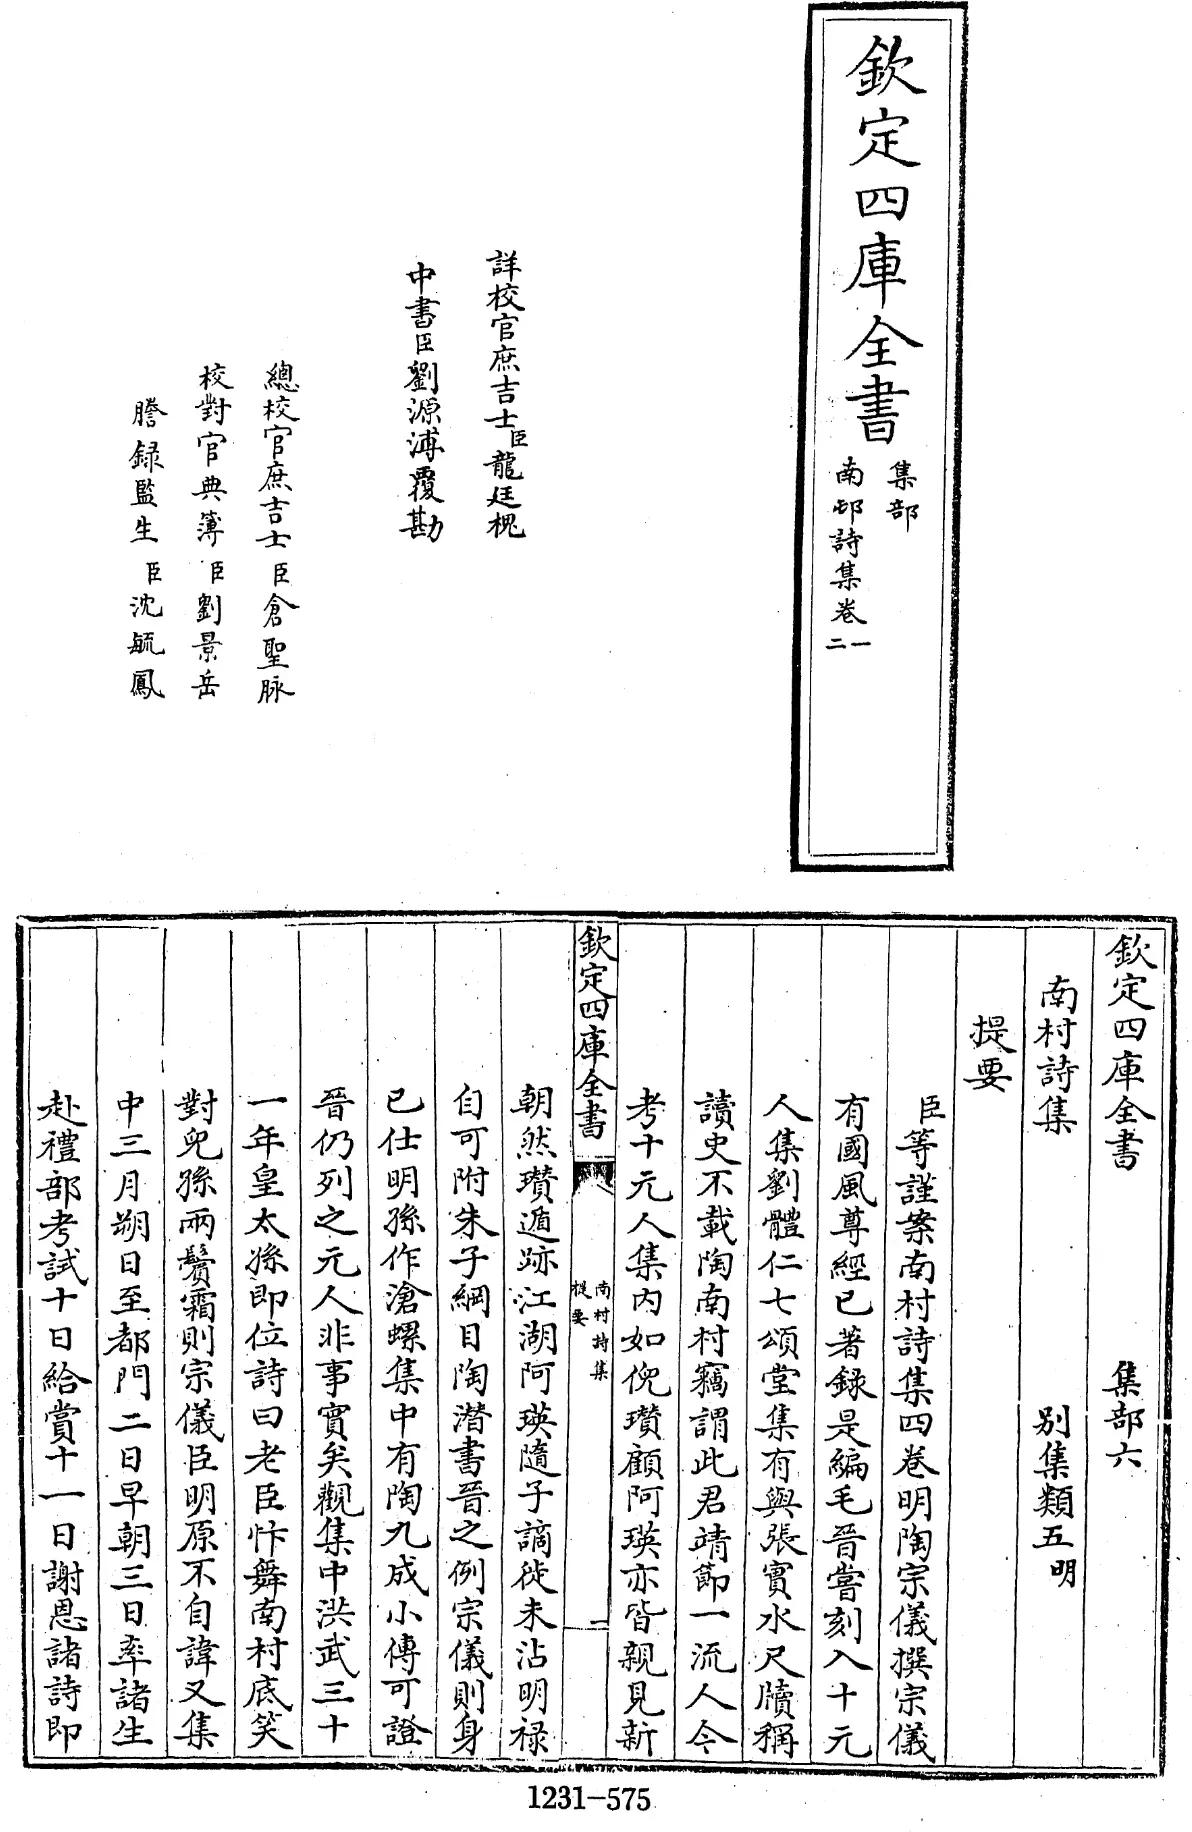 欽定四庫全書
集部
南邨詩集卷一
二
詳校官庶吉士臣龍廷槐
中書臣劉源溥覆勘
總校官庶吉士臣倉聖脉
校對官典簿臣劉景岳
謄録監生臣沈毓鳳
欽定四庫全書 集部六
南村詩集 别集類五明
提要
臣等謹案南村詩集四卷明陶宗儀撰宗儀
有國風尊經已著録是編毛晉嘗刻入十元
人集劉體仁七頌堂集有與張實水尺牘稱
讀史不載陶南村竊謂此君靖節一流人今
考十元人集内如倪瓚顧阿瑛亦皆親見新
欽定四庫全書
南村詩集
提要
一
朝然瓚遁跡江湖阿瑛隨子謫徙未沾明禄
自可附朱子綱目陶潛書晉之例宗儀則身
已仕明孫作滄螺集中有陶九成小傳可證
晉仍列之元人非事實矣觀集中洪武三十
一年皇太孫即位詩曰老臣忭舞南村底笑
對兒孫兩鬢霜則宗儀臣明原不自諱又集
中三月朔日至都門二日早朝三日率諸生
赴禮部考試十日給賞十一日謝恩諸詩即
1231-575